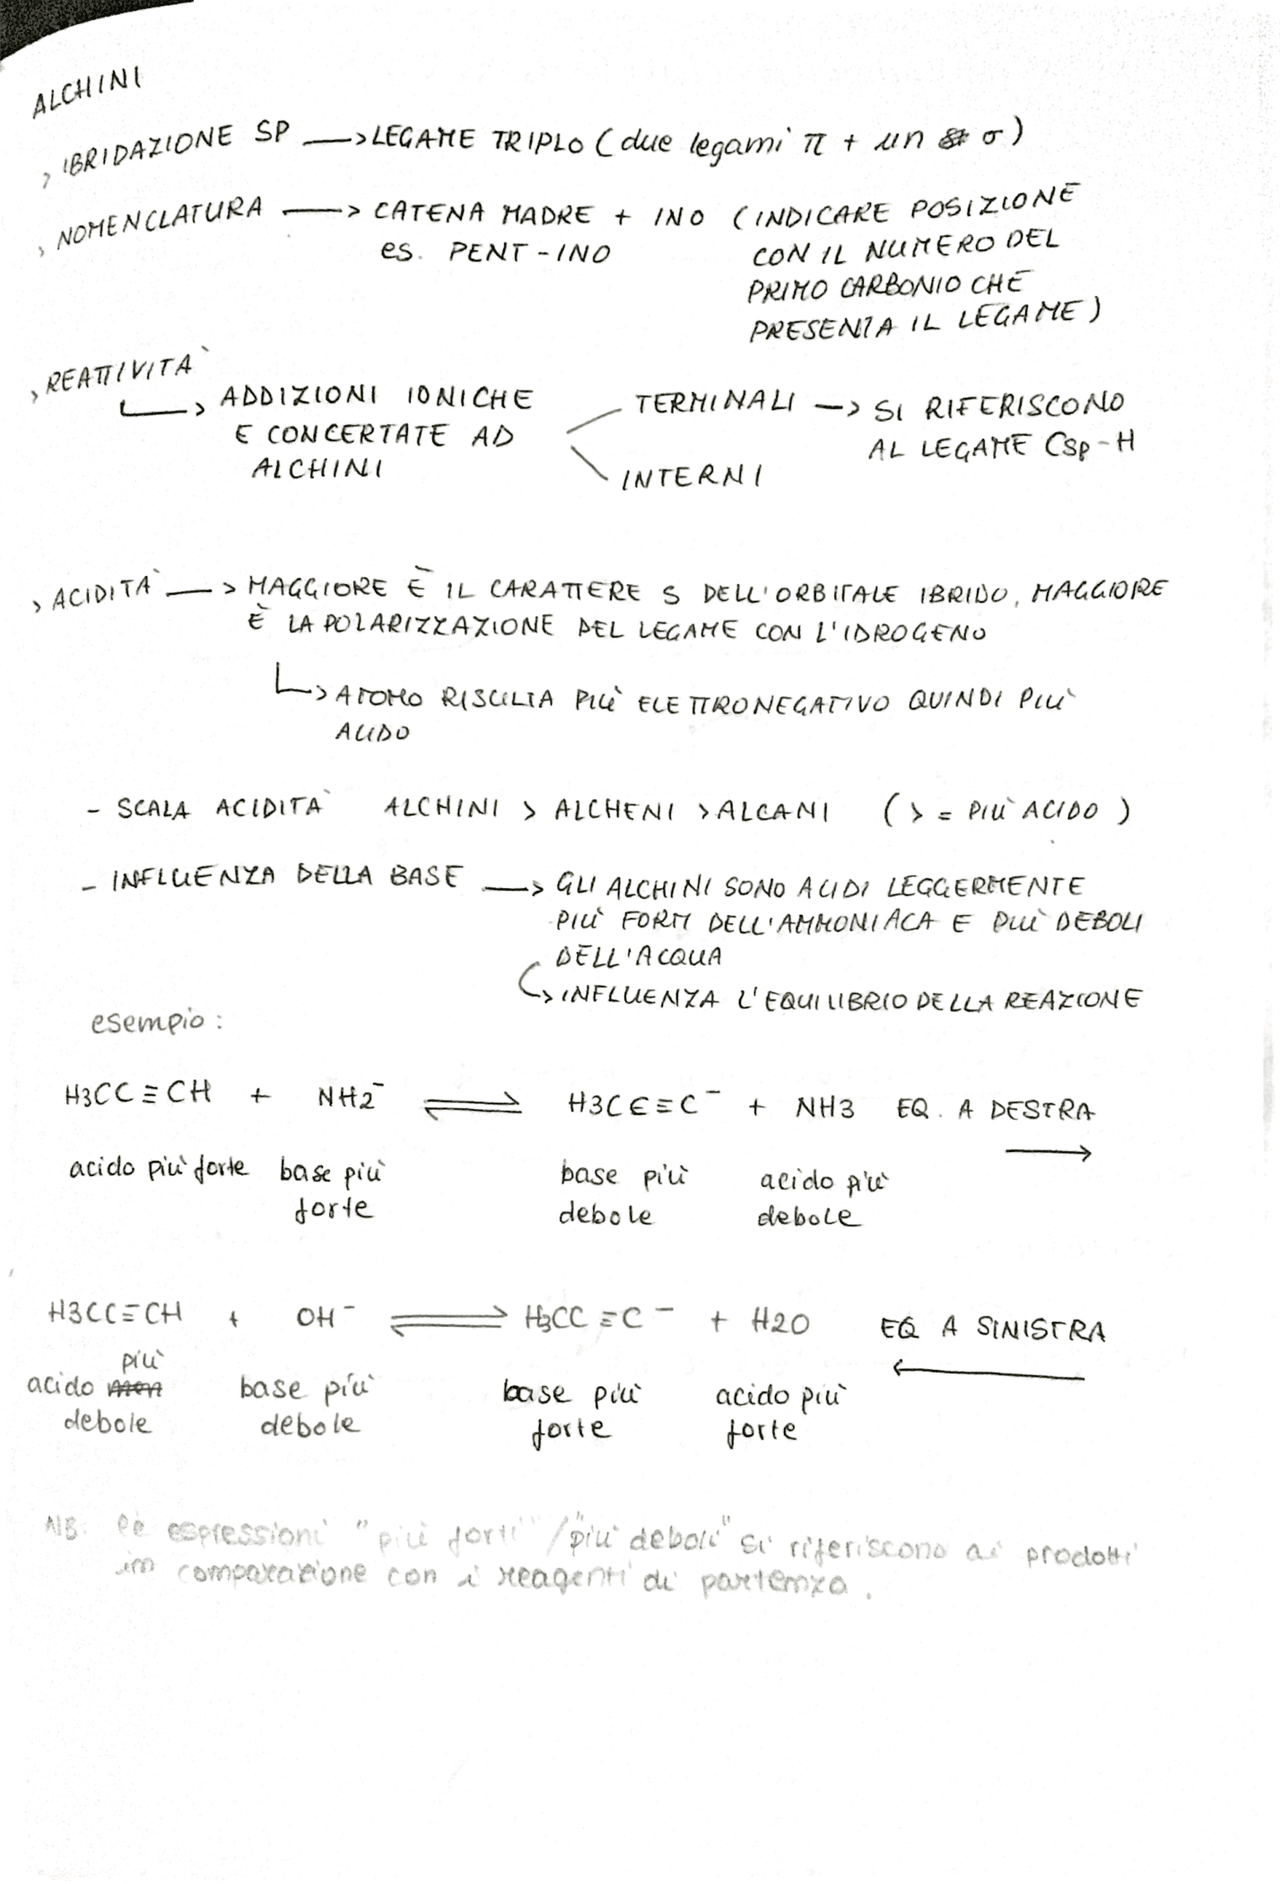 ALCHINI
> IBRIDAZIONE SP —> LEGAME TRIPLO (due legami π + un σ)
> NOMENCLATURA —> CATENA MADRE + INO (INDICARE POSIZIONE
es. PENT-INO CON IL NUMERO DEL
PRIMO CARBONIO CHE
PRESENTA IL LEGAME)
> REATTIVITÀ
ADDIZIONI IONICHE
E CONCERTATE AD
ALCHINI
TERMINALI —> SI RIFERISCONO
AL LEGAME Csp-H
INTERNI
> ACIDITÀ —> MAGGIORE È IL CARATTERE S DELL'ORBITALE IBRIDO, MAGGIORE
È LA POLARIZZAZIONE DEL LEGAME CON L'IDROGENO
> ATOMO RISULTA PIÙ ELETTRONEGATIVO QUINDI PIÙ
ACIDO
- SCALA ACIDITÀ ALCHINI > ALCHENI > ALCANI (> = PIÙ ACIDO)
- INFLUENZA DELLA BASE —> GLI ALCHINI SONO ACIDI LEGGERMENTE
PIÙ FORTI DELL'AMMONIACA E PIÙ DEBOLI
DELL'ACQUA
> INFLUENZA L'EQUILIBRIO DELLA REAZIONE
esempio:
H3CC≡CH + NH2⁻ ⇌ H3CC≡C⁻ + NH3 EQ. A DESTRA
→
acido più forte base più forte base più debole acido più debole
H3CC≡CH + OH⁻ ⇌ H3CC≡C⁻ + H2O EQ A SINISTRA
←
acido più debole base più debole base più forte acido più forte
NB: le espressioni "più forti"/"più deboli" si riferiscono ai prodotti
in comparazione con i reagenti di partenza.